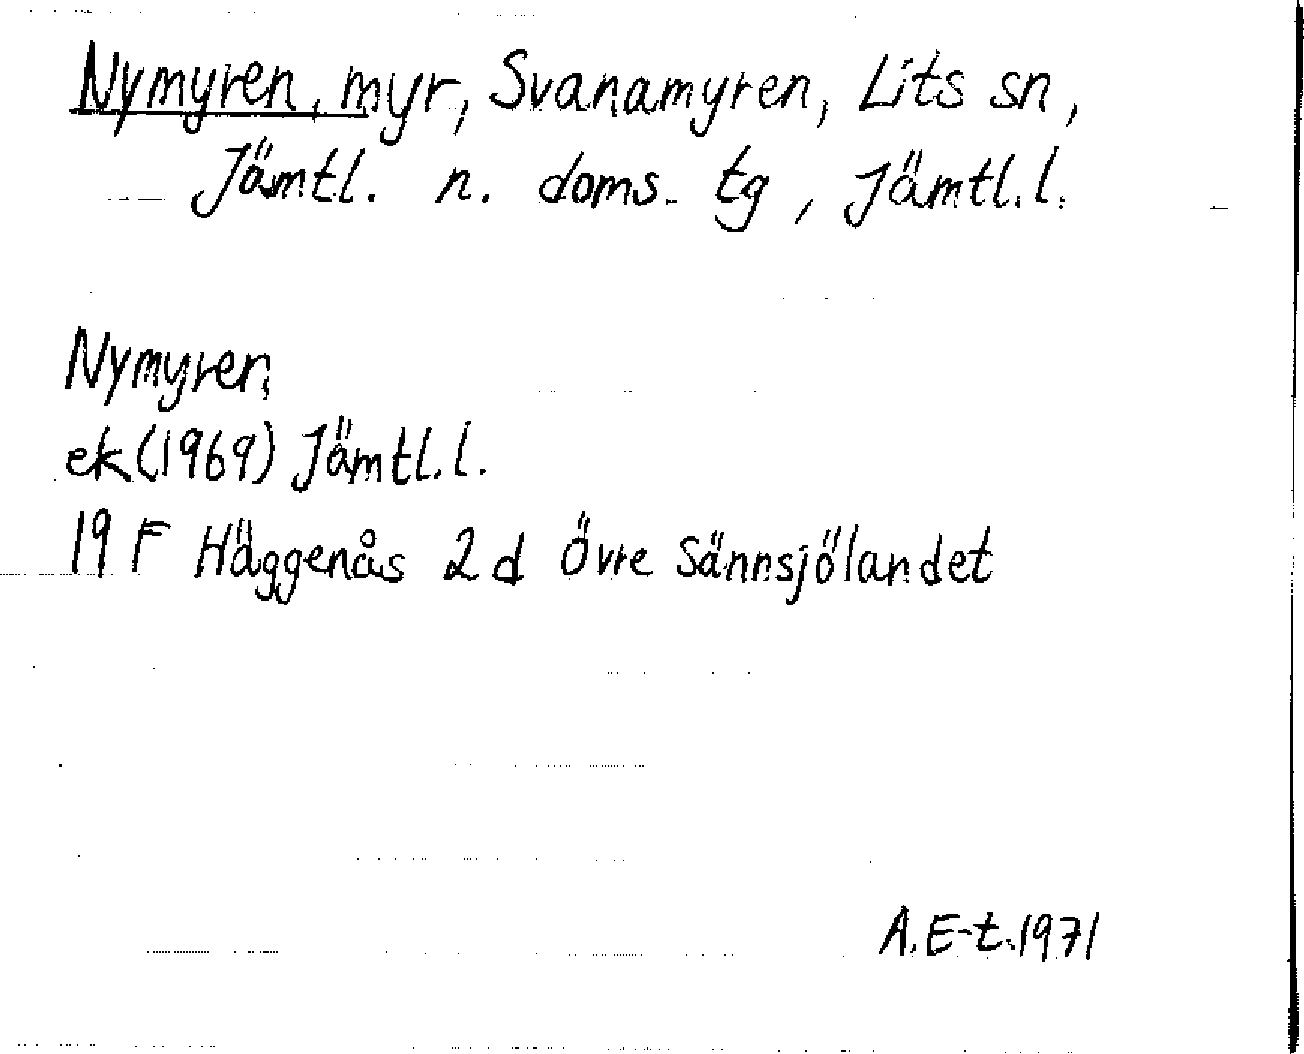 Nymyren, myr, Svanamyren, Lits sn,
Jämtl. n. doms. tg, Jämtl. l.
Nymyren,
ek (1969) Jämtl. l.
19 F Häggenås 2 d Övre Sännsjölandet
A. E-t. 1971